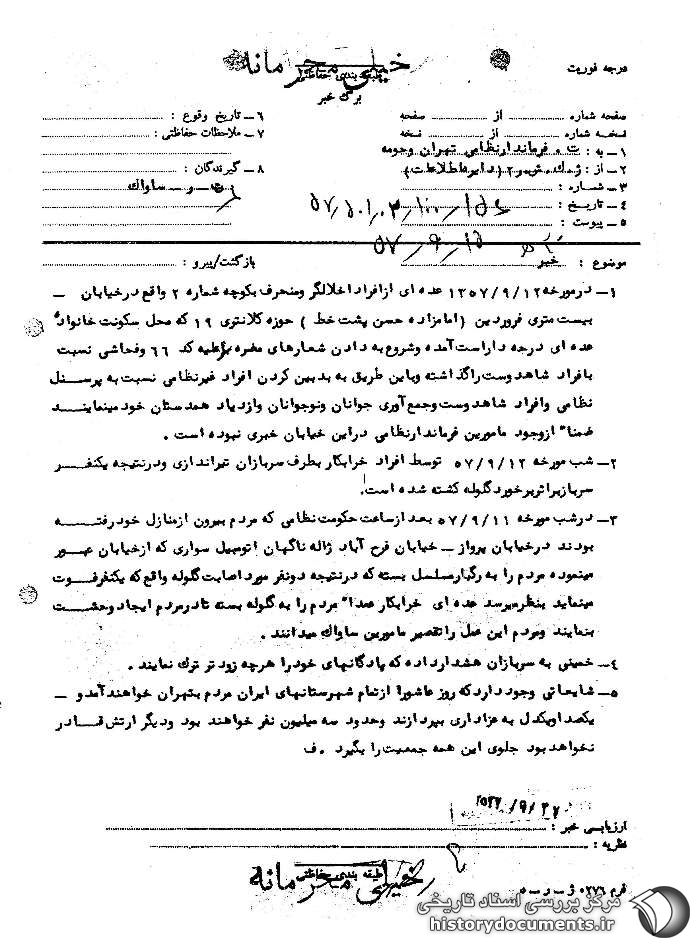 خیلی محرمانه
طبقه بندی حفاظتی
درجه فوریت
برگ خبر
صفحه شماره : از صفحه
نسخه شماره : از نسخه
۱ـ به : ت ۰ فرماندارنظامی تهران وحومه
۲ـ از : (دایره اطلاعات)
۳ـ شماره :
۴ـ تاریخ :
۵ـ پیوست :
۶ـ تاریخ وقوع :
۷ـ ملاحظات حفاظتی :
۸ـ گیرندگان :
ساواک
۵۷/۹/۱۵
موضوع : خبر
بازگشت/پیرو :
۱ـ درمورخه ۱۳۵۷/۹/۱۲ عده ای ازافراد اخلالگر ومنحرف بکوچه شماره ۲ واقع درخیابان ـ
بیست متری فروردین (امامزاده حسن پشت خط) حوزه کلانتری ۱۹ که محل سکونت خانواده
عده ای درجه داراست آمده وشروع به دادن شعارهای مضره برعلیه کد ۶۶ وفحاشی نسبت
بافراد شاهدوست راگذاشته وباین طریق به بدبین کردن افراد غیرنظامی نسبت به پرسنل
نظامی وافراد شاهدوست وجمع آوری جوانان ونوجوانان وازدیاد همدستان خود مینمایند
ضمنا" ازوجود مامورین فرماندارنظامی دراین خیابان خبری نبوده است .
۲ـ شب مورخه ۵۷/۹/۱۲ توسط افراد خرابکار بطرف سربازان تیراندازی ودرنتیجه یکنفر
سربازبراثربرخورد گلوله کشته شده است.
۳ـ درشب مورخه ۵۷/۹/۱۱ بعد ازساعت حکومت نظامی که مردم بیرون ازمنازل خود رفته
بودند درخیابان پرواز ـ خیابان فرح آباد ژاله ناگهان اتومبیل سواری که ازخیابان عبور
مینموده مردم را به رگبارمسلسل بسته که درنتیجه دونفر مورد اصابت گلوله واقع که یکنفرفوت
مینماید بنظرمیرسد عده ای خرابکار عمدا" مردم را به گلوله بسته تادرمردم ایجاد وحشت
بنمایند ومردم این عمل را تقصیر مامورین ساواک میدانند .
۴ـ خمینی به سربازان هشدارداده که پادگانهای خود را هرچه زود تر ترک نمایند .
۵ـ شایعاتی وجود دارد که روز عاشورا ازتمام شهرستانهای ایران مردم بتهران خواهند آمد و ـ
یکصدا ویکدل به عزاداری بپردازند وحدود سه میلیون نفر خواهند بود ودیگر ارتش قادر
نخواهد بود جلوی این همه جمعیت را بگیرد . ف
ارزیابی خبر :
نظریه :
طبقه بندی حفاظتی
خیلی محرمانه
مرکز بررسی اسناد تاریخی
historydocuments.ir